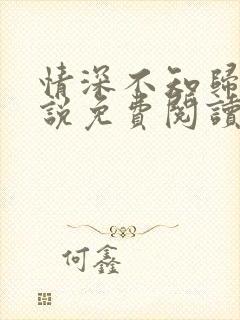 情深不知歸
說免費閱讀
何鑫